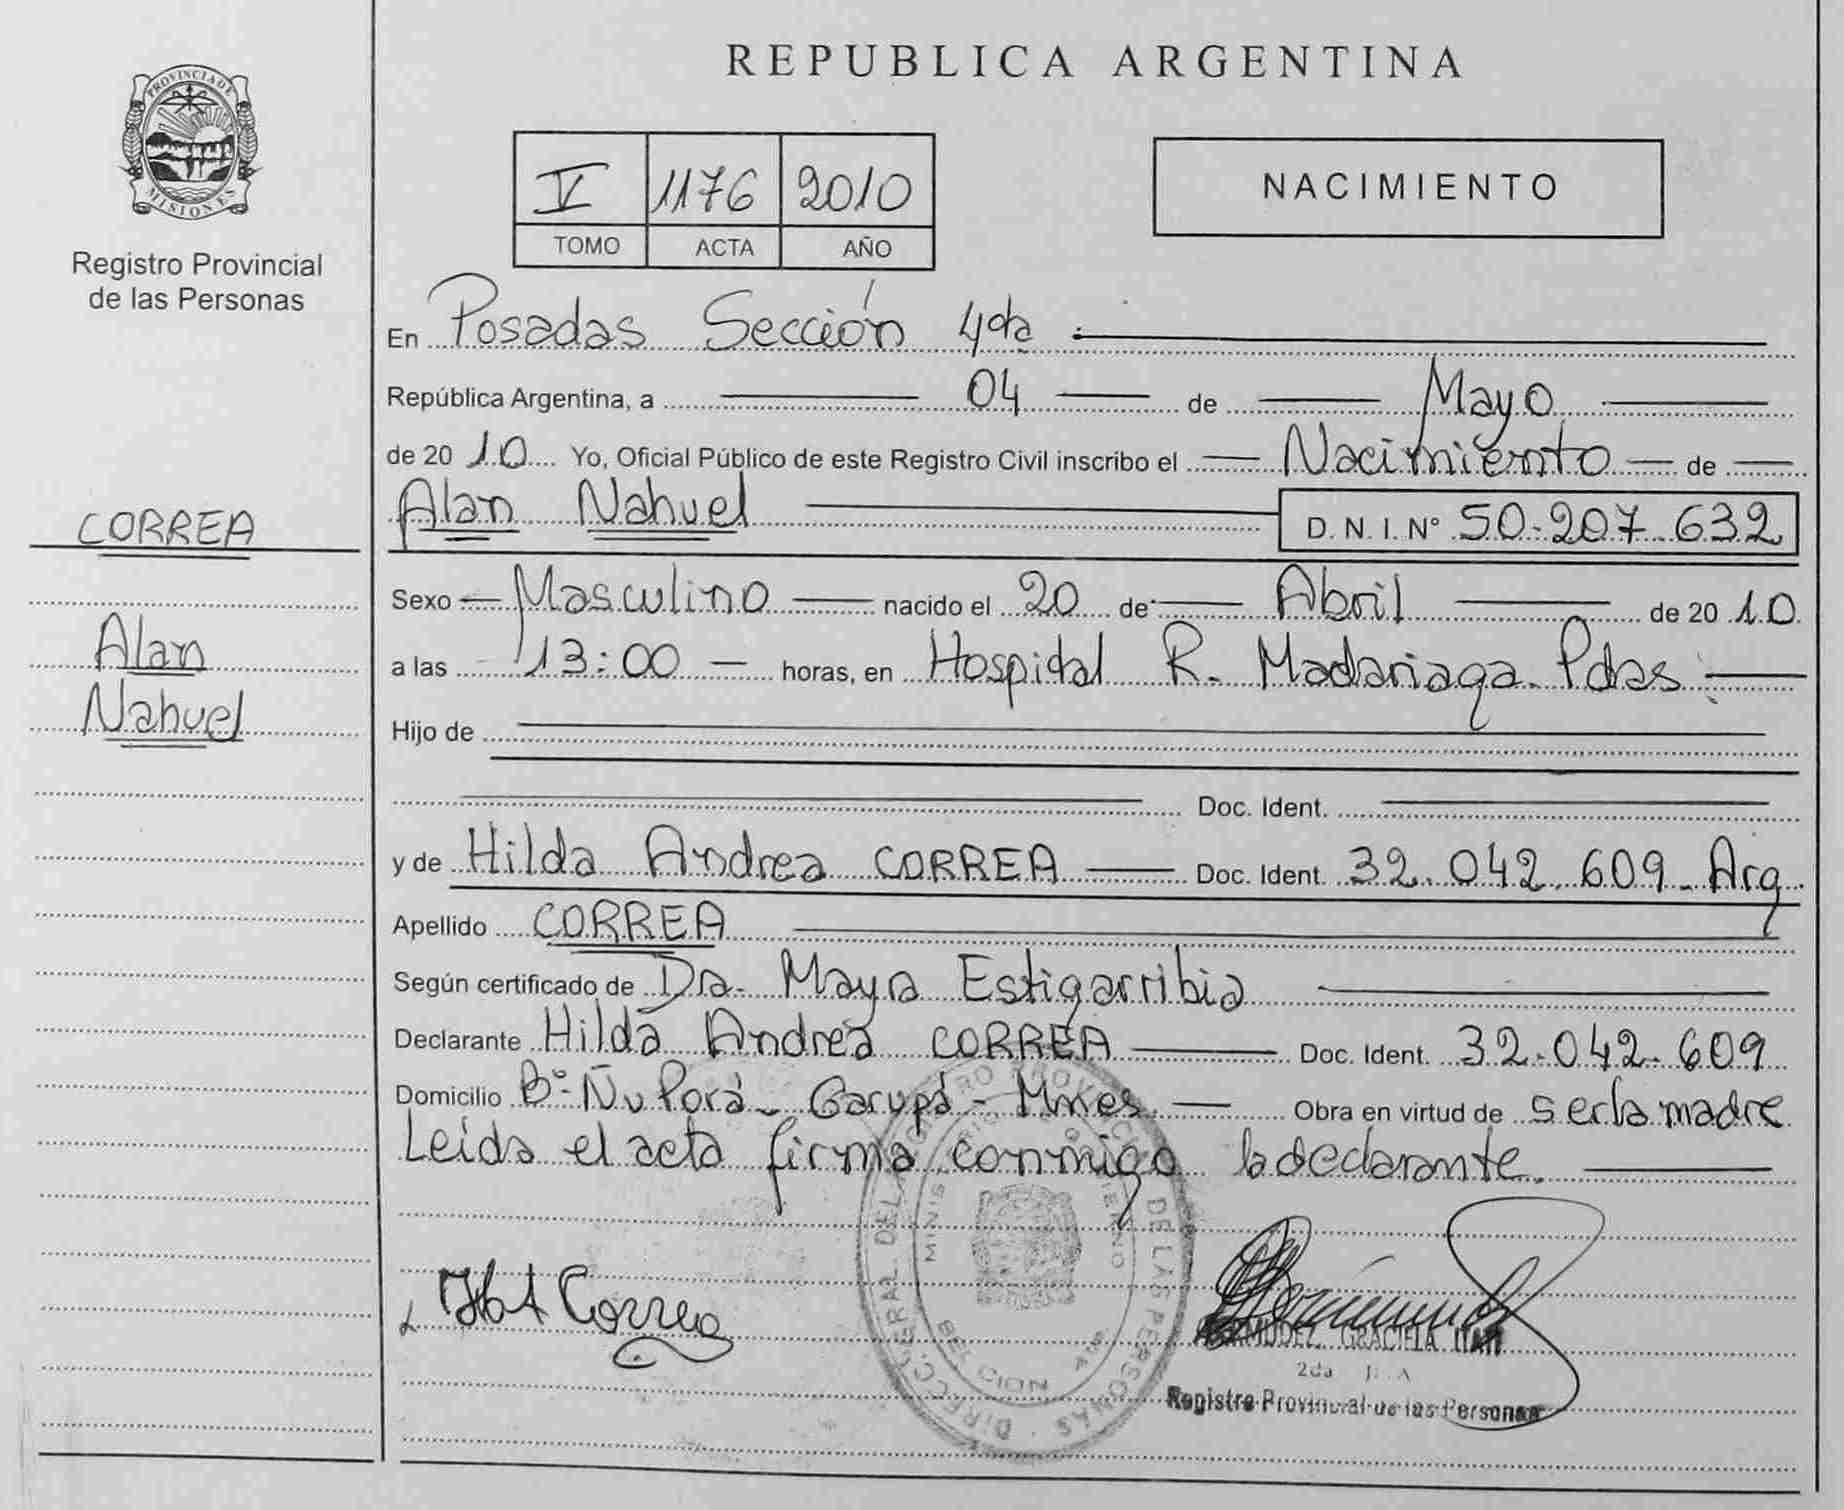 PROVINCIA DE
MISIONES
Registro Provincial
de las Personas
CORREA
Alan
Nahuel
REPUBLICA ARGENTINA
V 1176 2010
TOMO ACTA AÑO
NACIMIENTO
En Posadas Sección 4ta
República Argentina, a 04 de Mayo
de 2010 Yo, Oficial Público de este Registro Civil inscribo el Nacimiento de
Alan Nahuel D. N. I. N° 50.207.632
Sexo Masculino nacido el 20 de Abril de 2010
a las 13:00 horas, en Hospital R. Madariaga. Pdas
Hijo de
Doc. Ident.
y de Hilda Andrea CORREA Doc. Ident. 32.042.609 - Arg
Apellido CORREA
Según certificado de Dra. Mayra Estigarribia
Declarante Hilda Andrea CORREA Doc. Ident. 32.042.609
Domicilio B° Ñu Porá - Garupá - Mnes. Obra en virtud de ser la madre
Leída el acta firma conmigo la declarante.
H A Correa
BERMUDEZ, GRACIELA ITATI
2da
Registro Provincial de las Personas
DIRECC. GRAL. DEL REGISTRO PROVINCIAL DE LAS PERSONAS